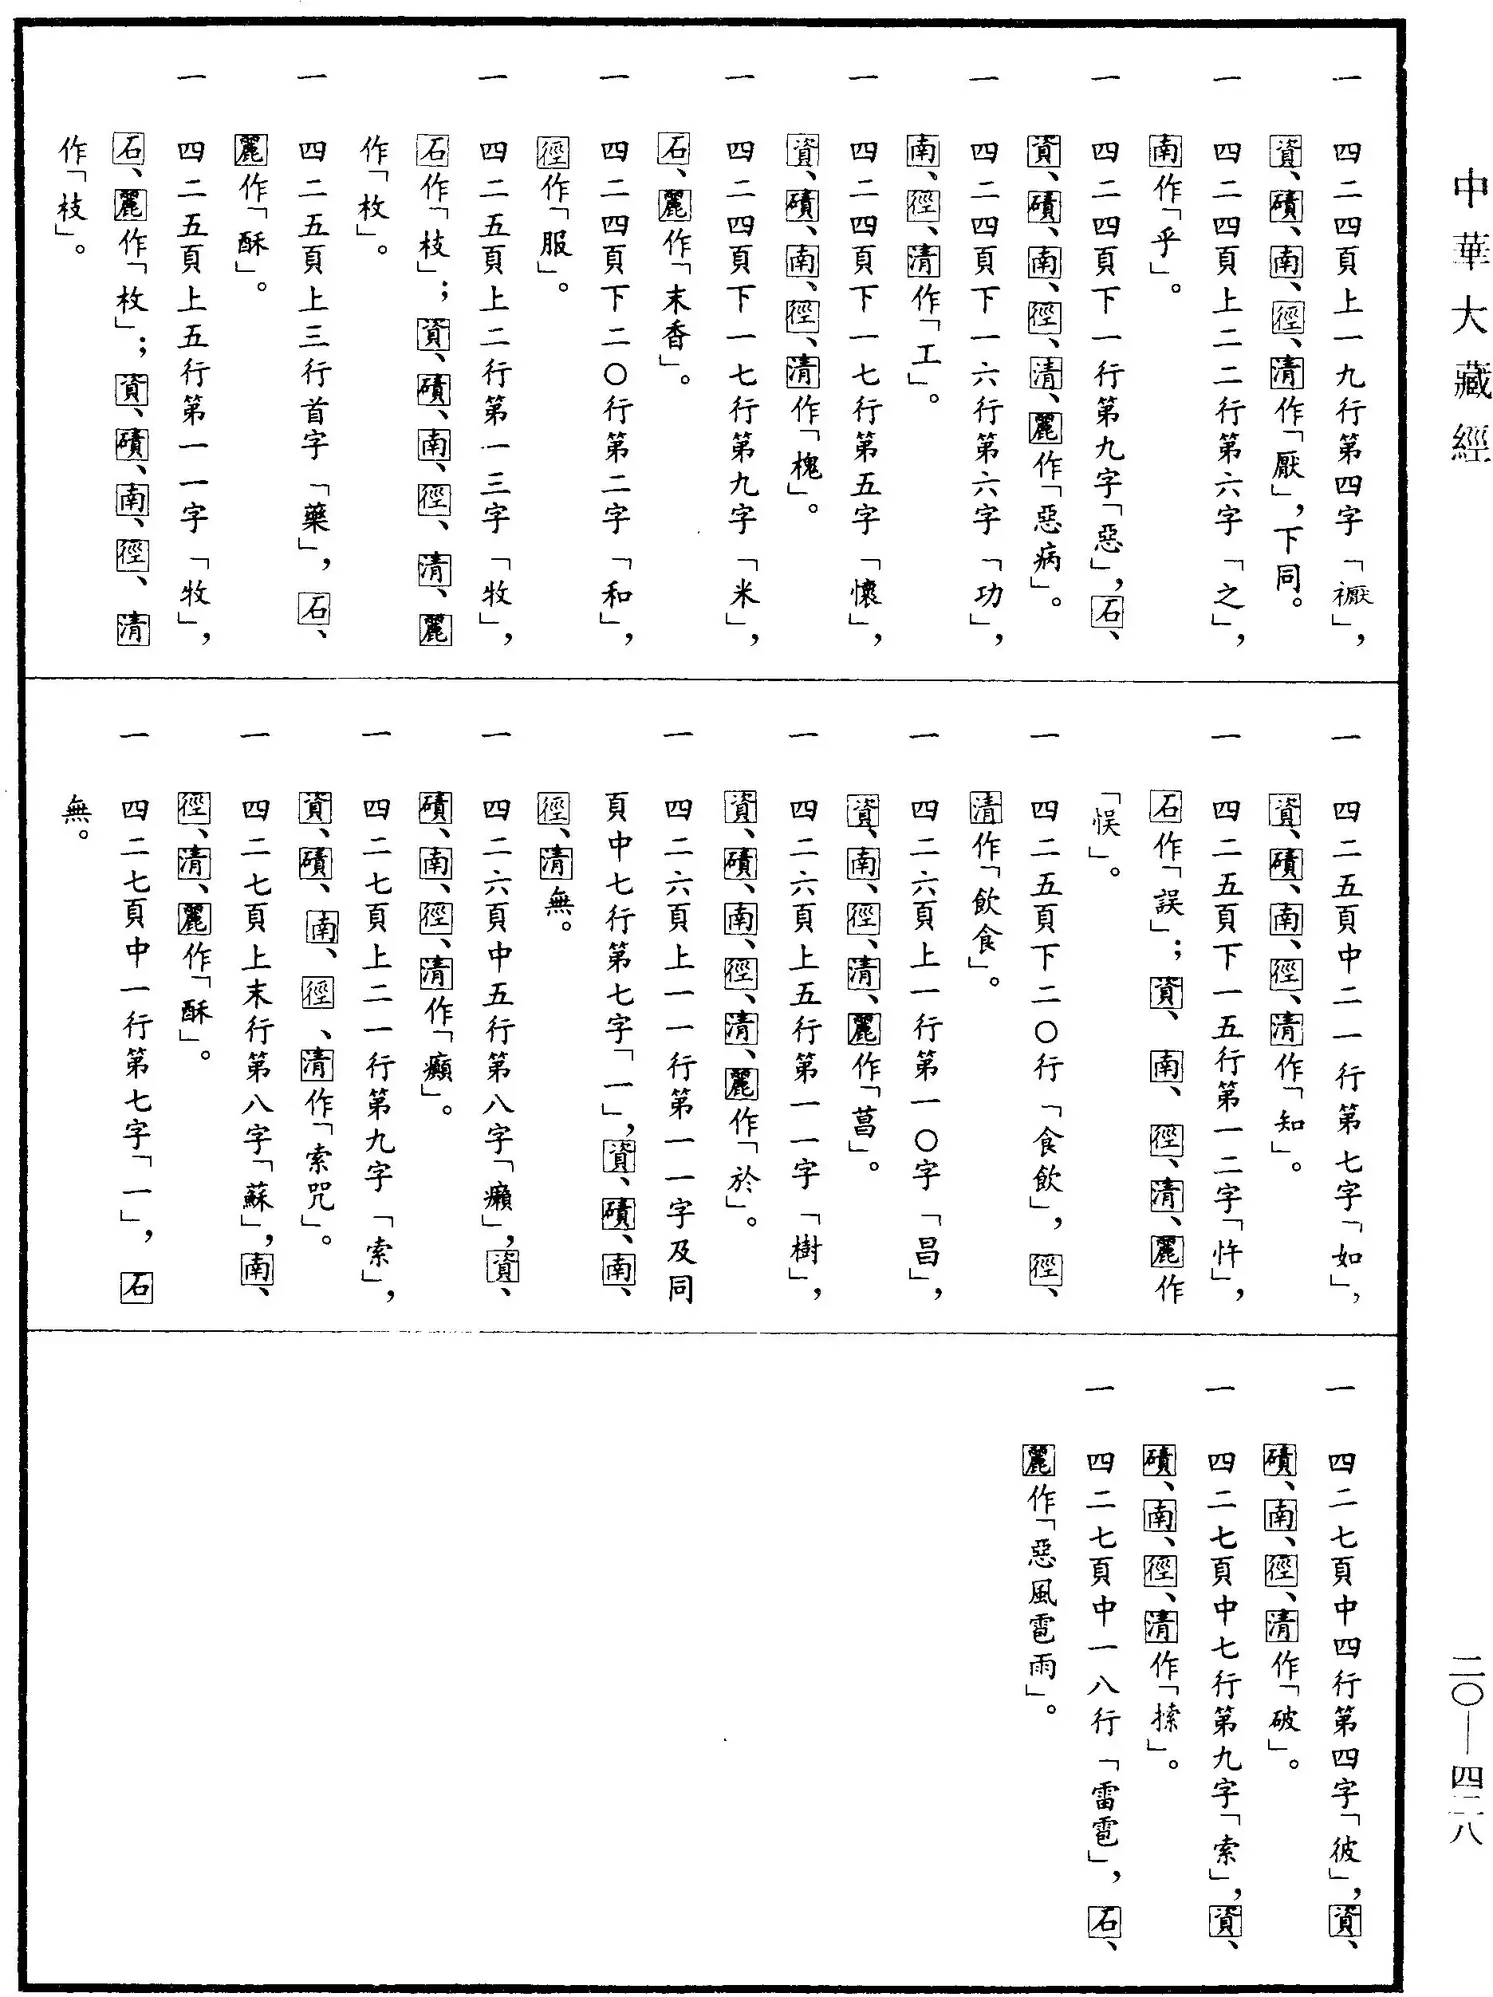 中華大藏經
一　四二四頁上一九行第四字「禰」，
資、磧、南、徑、清作「厭」，下同。
一　四二四頁上二二行第六字「之」，
南作「乎」。
一　四二四頁下一行第九字「惡」，石、
資、磧、南、徑、清、麗作「惡病」。
一　四二四頁下一六行第六字「功」，
南、徑、清作「工」。
一　四二四頁下一七行第五字「懷」，
資、磧、南、徑、清作「槐」。
一　四二四頁下一七行第九字「米」，
石、麗作「末香」。
一　四二四頁下二〇行第二字「和」，
徑作「服」。
一　四二五頁上二行第一三字「牧」，
石作「枝」；資、磧、南、徑、清、麗
作「枚」。
一　四二五頁上三行首字「藥」，石、
麗作「酥」。
一　四二五頁上五行第一一字「牧」，
石、麗作「枚」；資、磧、南、徑、清
作「枝」。
一　四二五頁中二一行第七字「如」，
資、磧、南、徑、清作「知」。
一　四二五頁下一五行第一二字「忤」，
石作「誤」；資、南、徑、清、麗作
「悮」。
一　四二五頁下二〇行「食飲」，徑、
清作「飲食」。
一　四二六頁上一行第一〇字「昌」，
資、南、徑、清、麗作「菖」。
一　四二六頁上五行第一一字「樹」，
資、磧、南、徑、清、麗作「於」。
一　四二六頁上一一行第一一字及同
頁中七行第七字「一」，資、磧、南、
徑、清無。
一　四二六頁中五行第八字「癩」，資、
磧、南、徑、清作「癲」。
一　四二七頁上二一行第九字「索」，
資、磧、南、徑、清作「索咒」。
一　四二七頁上末行第八字「蘇」，南、
徑、清、麗作「酥」。
一　四二七頁中一行第七字「一」，石
無。
一　四二七頁中四行第四字「彼」，資、
磧、南、徑、清作「破」。
一　四二七頁中七行第九字「索」，資、
磧、南、徑、清作「搽」。
一　四二七頁中一八行「雷雹」，石、
麗作「惡風雹雨」。
二〇—四二八